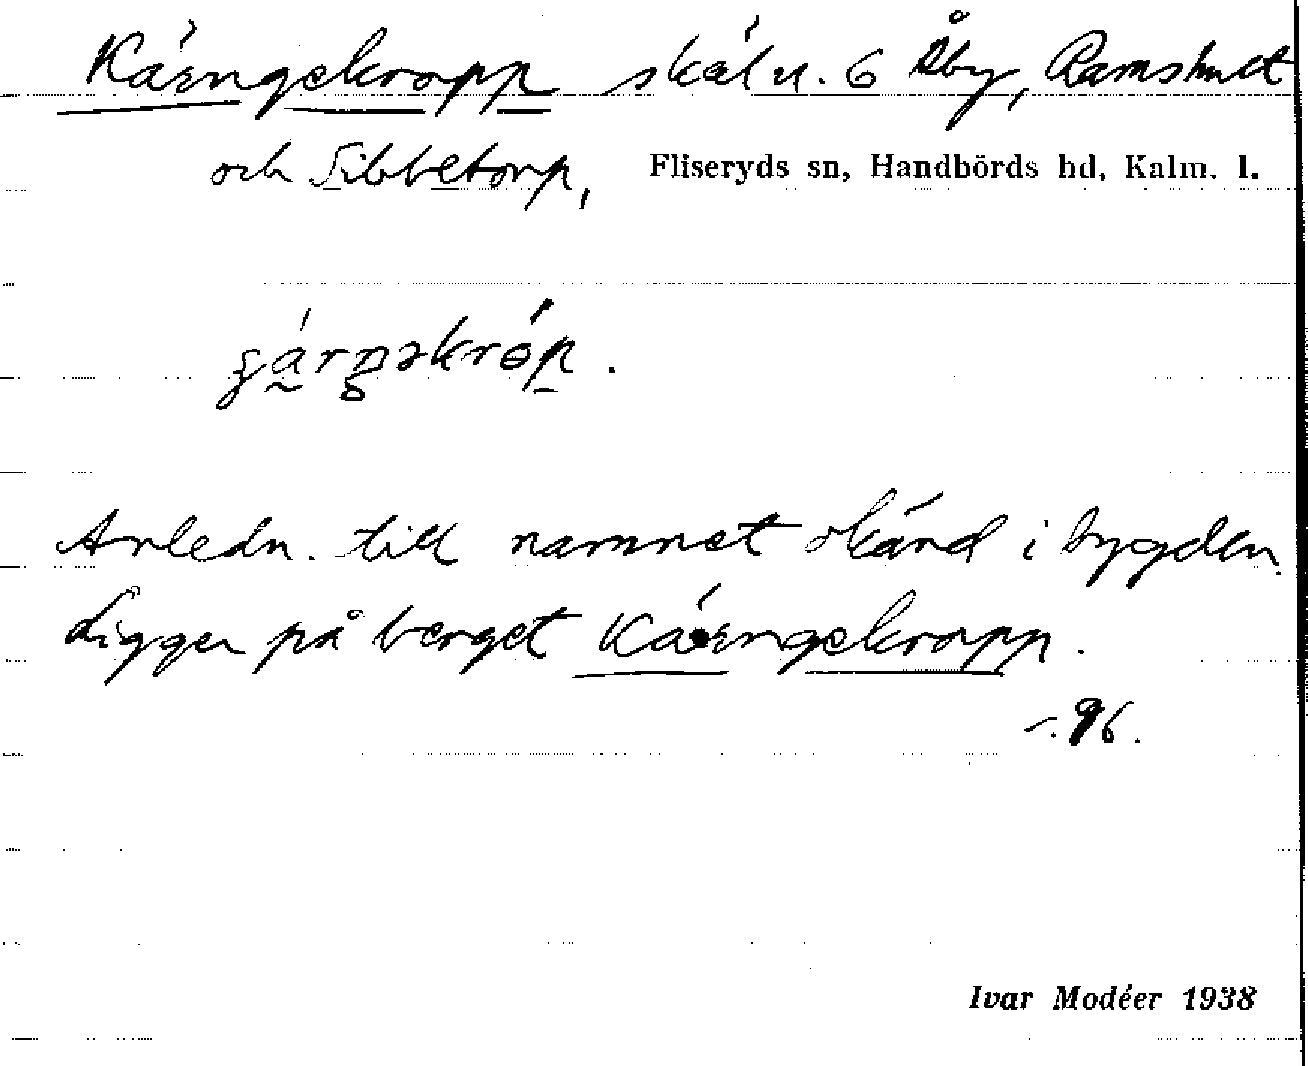 Kärngekropp skäl u. 6 Åby, Ramshult
och Sibbetorp, Fliseryds sn, Handbörds hd, Kalm. l.
Anledn. till namnet okänd i bygden.
Ligger på berget Kärngekropp.
96.
Ivar Modéer 1938